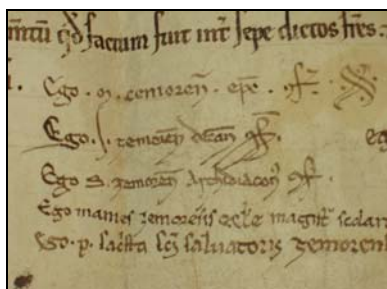 mtũ qđ factum fuit int̃ sepe dictos fr̃es.
Ego . M . cemoreñ . ep̃c . ꝯf̃ .
Ego . f . zemoreñ decañ ꝯf̃ .
Ego S. zemoreñ Archidiacoñ ꝯf .
Ego maneſ zemorẽſis ecl̃e magiſt̃ scolar
Ego . p . sac̃sta sc̃i salvatoris zemoren